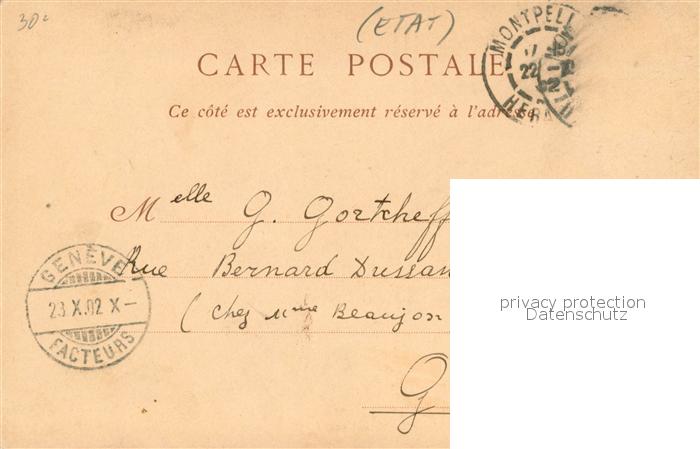 30c
(ETAT)
CARTE POSTALE
Ce côté est exclusivement réservé à l'adresse
MONTPELL
22
02
HERA
Melle G. Gortcheff
Rue Bernard Dussan
(chez Mme Beaujon
G
GENÈVE
23 X.02 X—
FACTEURS
privacy protection
Datenschutz